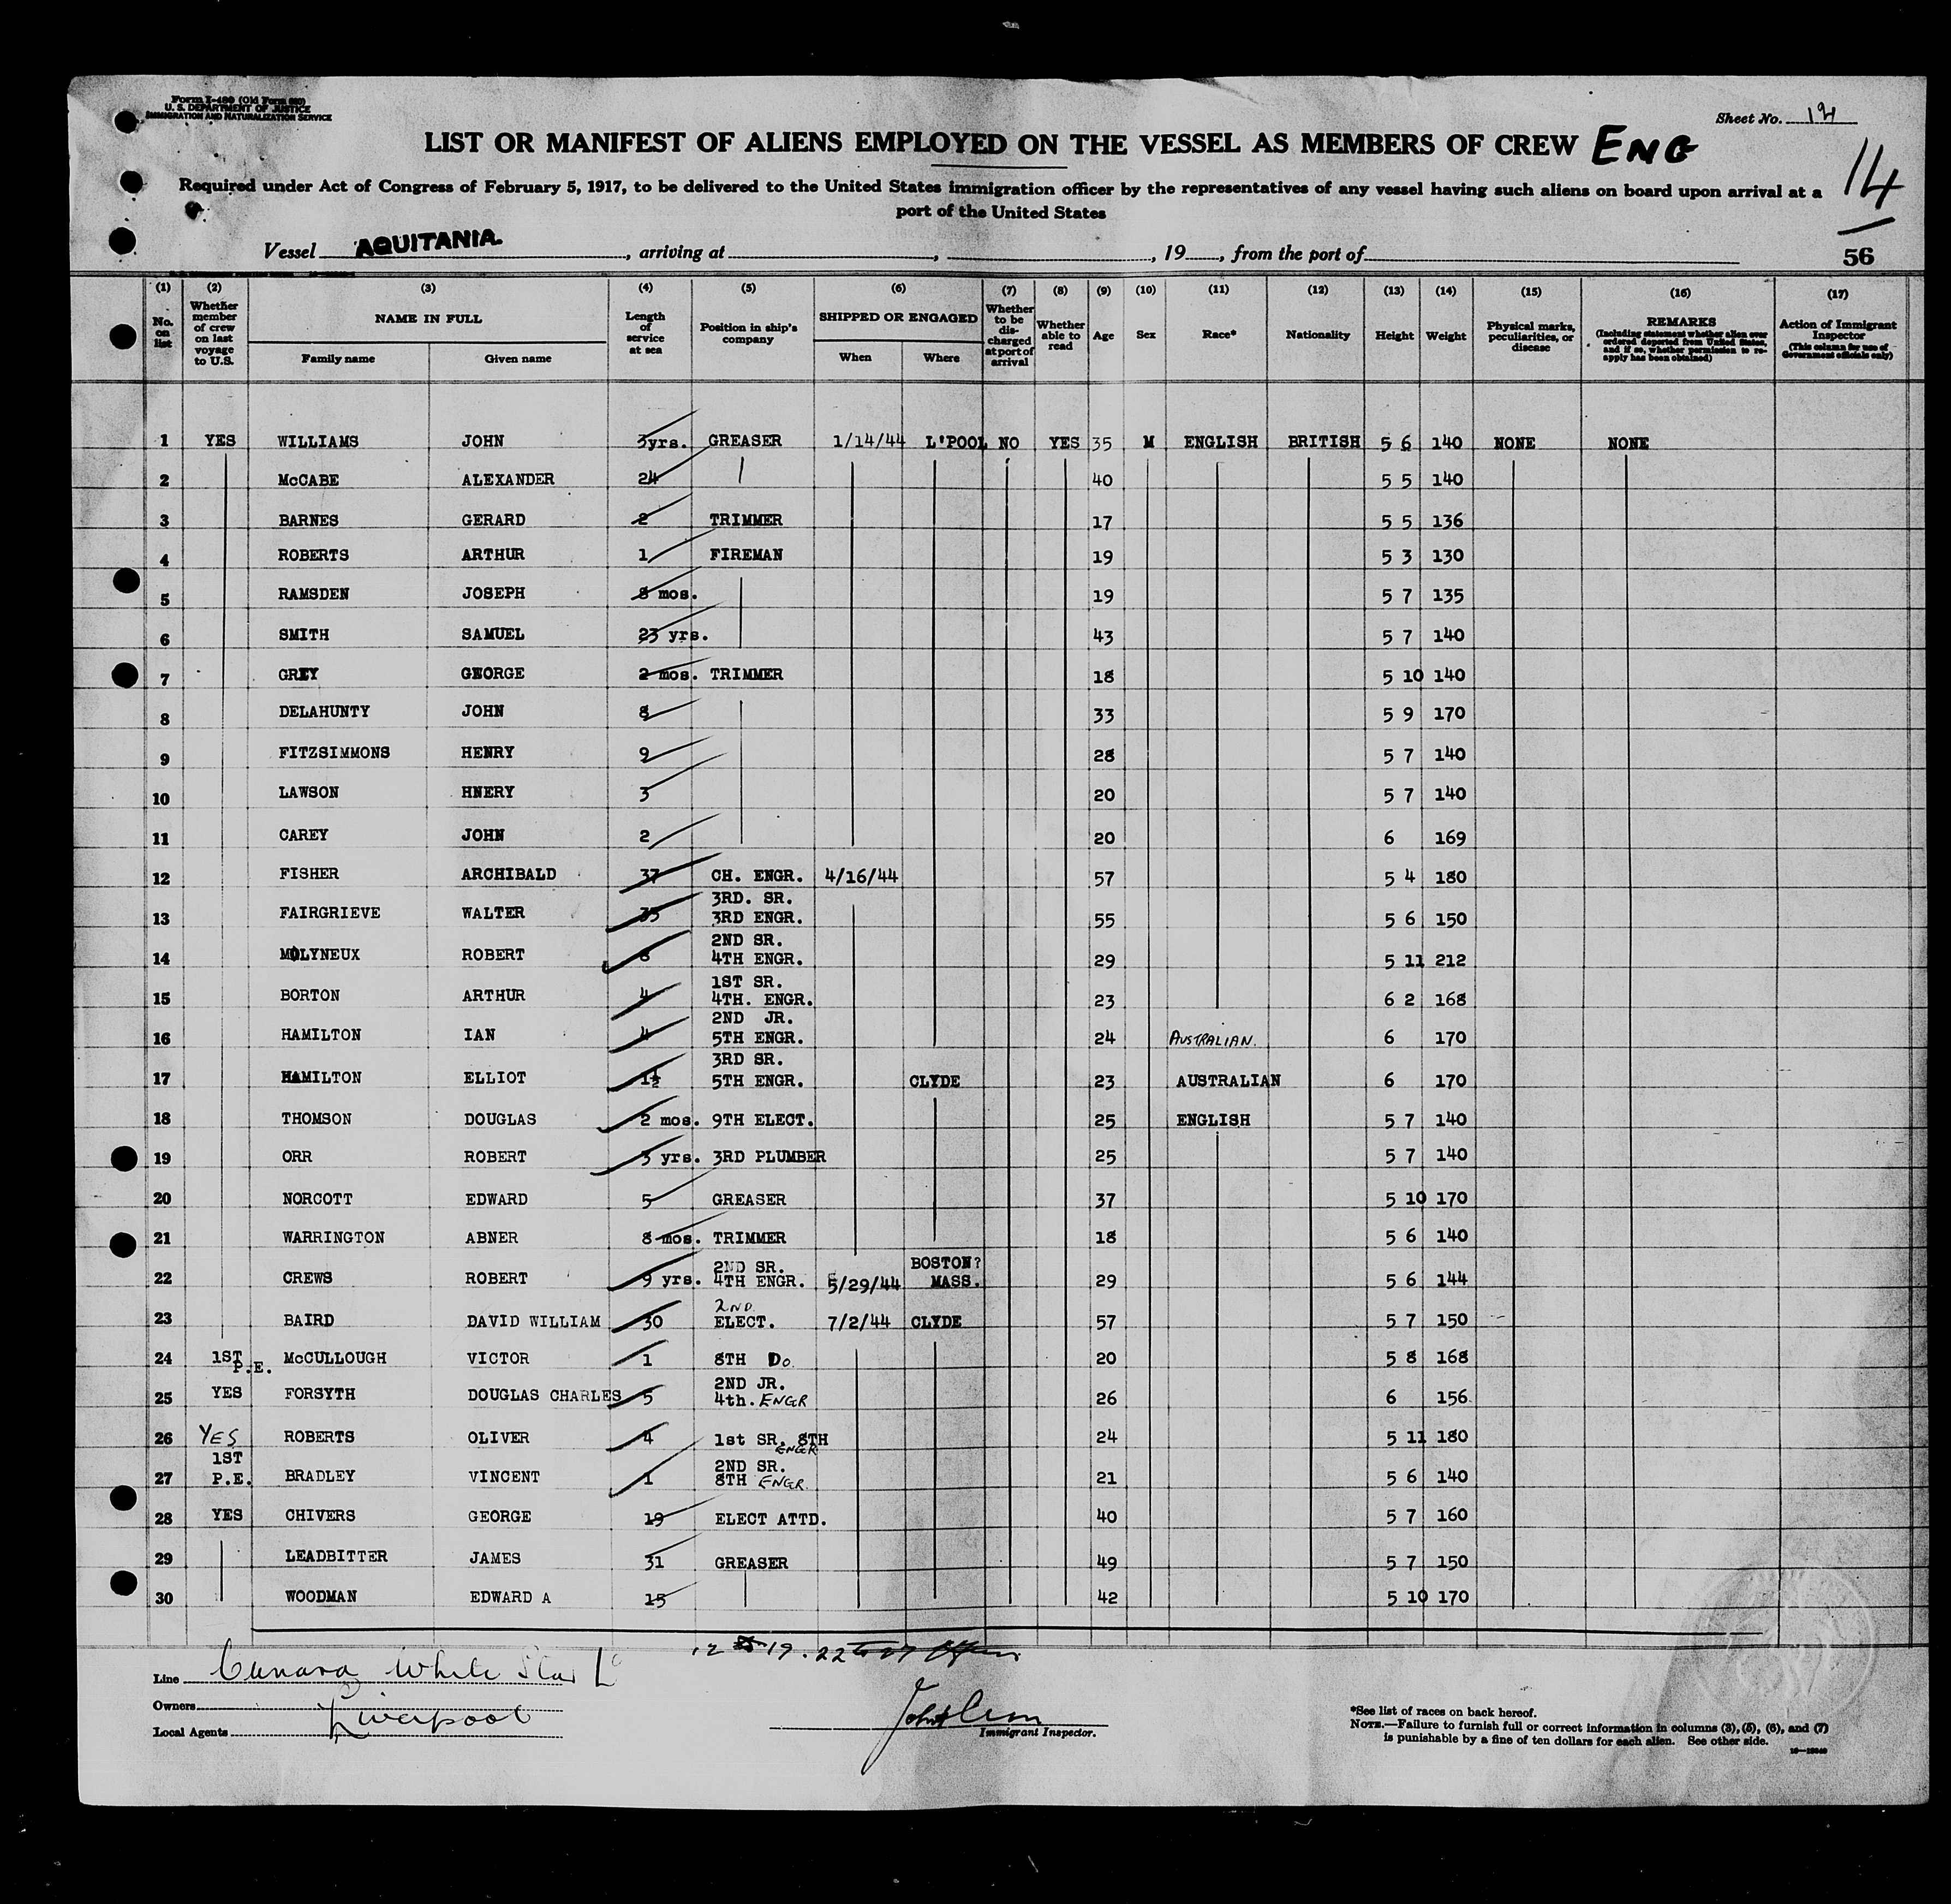 Form I-480 (Old Form 680)
U. S. DEPARTMENT OF JUSTICE
IMMIGRATION AND NATURALIZATION SERVICE
Sheet No. 12
LIST OR MANIFEST OF ALIENS EMPLOYED ON THE VESSEL AS MEMBERS OF CREW ENG
14
Required under Act of Congress of February 5, 1917, to be delivered to the United States immigration officer by the representatives of any vessel having such aliens on board upon arrival at a
port of the United States
Vessel AQUITANIA, arriving at , , 19 , from the port of
56
(1) (2) (3) (4) (5) (6) (7) (8) (9) (10) (11) (12) (13) (14) (15) (16) (17)
No. on list Whether member of crew on last voyage to U.S. NAME IN FULL Family name Given name Length of service at sea Position in ship's company SHIPPED OR ENGAGED When Where Whether to be discharged at port of arrival Whether able to read Age Sex Race* Nationality Height Weight Physical marks, peculiarities, or disease REMARKS (Including statement whether alien ever ordered deported from United States, and if so, whether permission to reapply has been obtained) Action of Immigrant Inspector (This column for use of Government officials only)
1 YES WILLIAMS JOHN 3yrs. GREASER 1/14/44 L'POOL NO YES 35 M ENGLISH BRITISH 5 6 140 NONE NONE
2 McCABE ALEXANDER 24 40 5 5 140
3 BARNES GERARD 2 TRIMMER 17 5 5 136
4 ROBERTS ARTHUR 1 FIREMAN 19 5 3 130
5 RAMSDEN JOSEPH 8 mos. 19 5 7 135
6 SMITH SAMUEL 23 yrs. 43 5 7 140
7 GREY GEORGE 2 mos. TRIMMER 18 5 10 140
8 DELAHUNTY JOHN 8 33 5 9 170
9 FITZSIMMONS HENRY 9 28 5 7 140
10 LAWSON HNERY 3 20 5 7 140
11 CAREY JOHN 2 20 6 169
12 FISHER ARCHIBALD 37 CH. ENGR. 4/16/44 57 5 4 180
13 FAIRGRIEVE WALTER 35 3RD. SR. 3RD ENGR. 55 5 6 150
14 MOLYNEUX ROBERT 8 2ND SR. 4TH ENGR. 29 5 11 212
15 BORTON ARTHUR 4 1ST SR. 4TH. ENGR. 23 6 2 168
16 HAMILTON IAN 4 2ND JR. 5TH ENGR. 24 AUSTRALIAN. 6 170
17 HAMILTON ELLIOT 1½ 3RD SR. 5TH ENGR. CLYDE 23 AUSTRALIAN 6 170
18 THOMSON DOUGLAS 2 mos. 9TH ELECT. 25 ENGLISH 5 7 140
19 ORR ROBERT 3 yrs. 3RD PLUMBER 25 5 7 140
20 NORCOTT EDWARD 5 GREASER 37 5 10 170
21 WARRINGTON ABNER 8 mos. TRIMMER 18 5 6 140
22 CREWS ROBERT 9 yrs. 2ND SR. 4TH ENGR. 5/29/44 BOSTON? MASS. 29 5 6 144
23 BAIRD DAVID WILLIAM 30 2ND ELECT. 7/2/44 CLYDE 57 5 7 150
24 1ST P.E. McCULLOUGH VICTOR 1 8TH Do 20 5 8 168
25 YES FORSYTH DOUGLAS CHARLES 5 2ND JR. 4th. ENGR 26 6 156
26 YES ROBERTS OLIVER 4 1st SR. 8TH ENGR 24 5 11 180
27 1ST P.E. BRADLEY VINCENT 1 2ND SR. 8TH ENGR. 21 5 6 140
28 YES CHIVERS GEORGE 19 ELECT ATTD. 40 5 7 160
29 LEADBITTER JAMES 31 GREASER 49 5 7 150
30 WOODMAN EDWARD A 15 42 5 10 170
12 19. 22 to 27
Line Cunard White Star Ld
Owners
Local Agents Liverpool
John
Immigrant Inspector.
*See list of races on back hereof.
NOTE.—Failure to furnish full or correct information in columns (3), (5), (6), and (7)
is punishable by a fine of ten dollars for each alien. See other side.